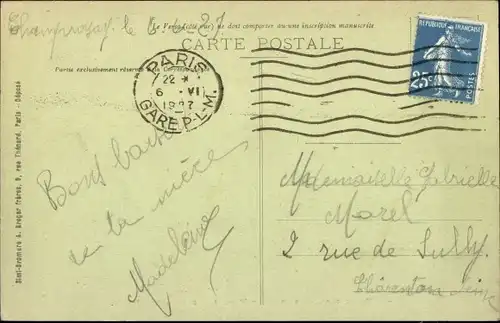 le 6-6-27
Le Verso (côté vue) ne doit comporter aucune inscription manuscrite
CARTE POSTALE
Partie exclusivement réservée à la Correspondance
REPUBLIQUE FRANÇAISE
25c
POSTES
PARIS
22
6 · VI
1927
GARE P.-L.-M.
Bons baisers
de ta nièce
Madeleine
Mademoiselle Gabrielle
Morel
2 rue de Sully
Charenton Seine
Simi-Bromure A. Breger frères, 9, rue Thénard, Paris - Déposé